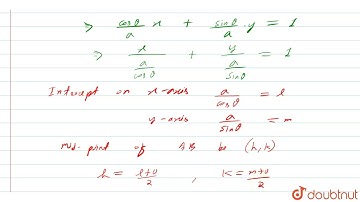 ⇒ cosθ/a x + sinθ/a . y = 1
⇒ x/(a/cosθ) + y/(a/sinθ) = 1
Intercept on x-axis a/cosθ = l
y-axis a/sinθ = m
Mid-point of AB be (h, k)
h = (l+0)/2 , k = (m+0)/2
doubtnut